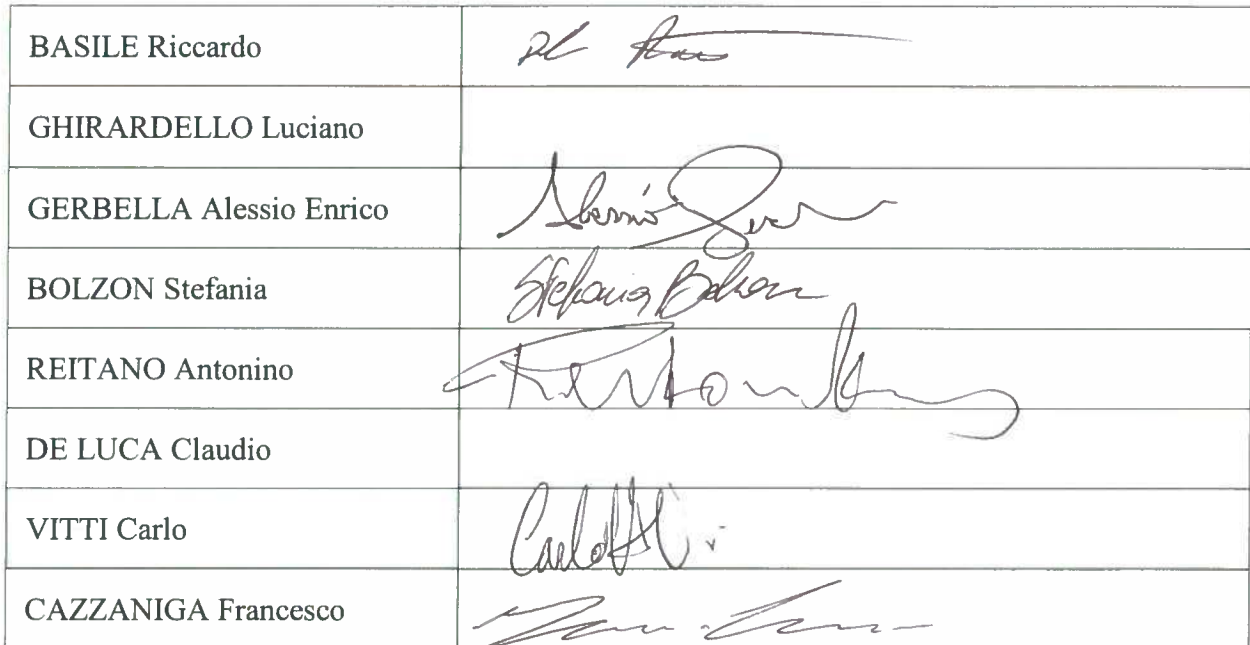 BASILE Riccardo
GHIRARDELLO Luciano
GERBELLA Alessio Enrico
BOLZON Stefania
Stefania Bolzon
REITANO Antonino
DE LUCA Claudio
VITTI Carlo
Carlo Vitti
CAZZANIGA Francesco